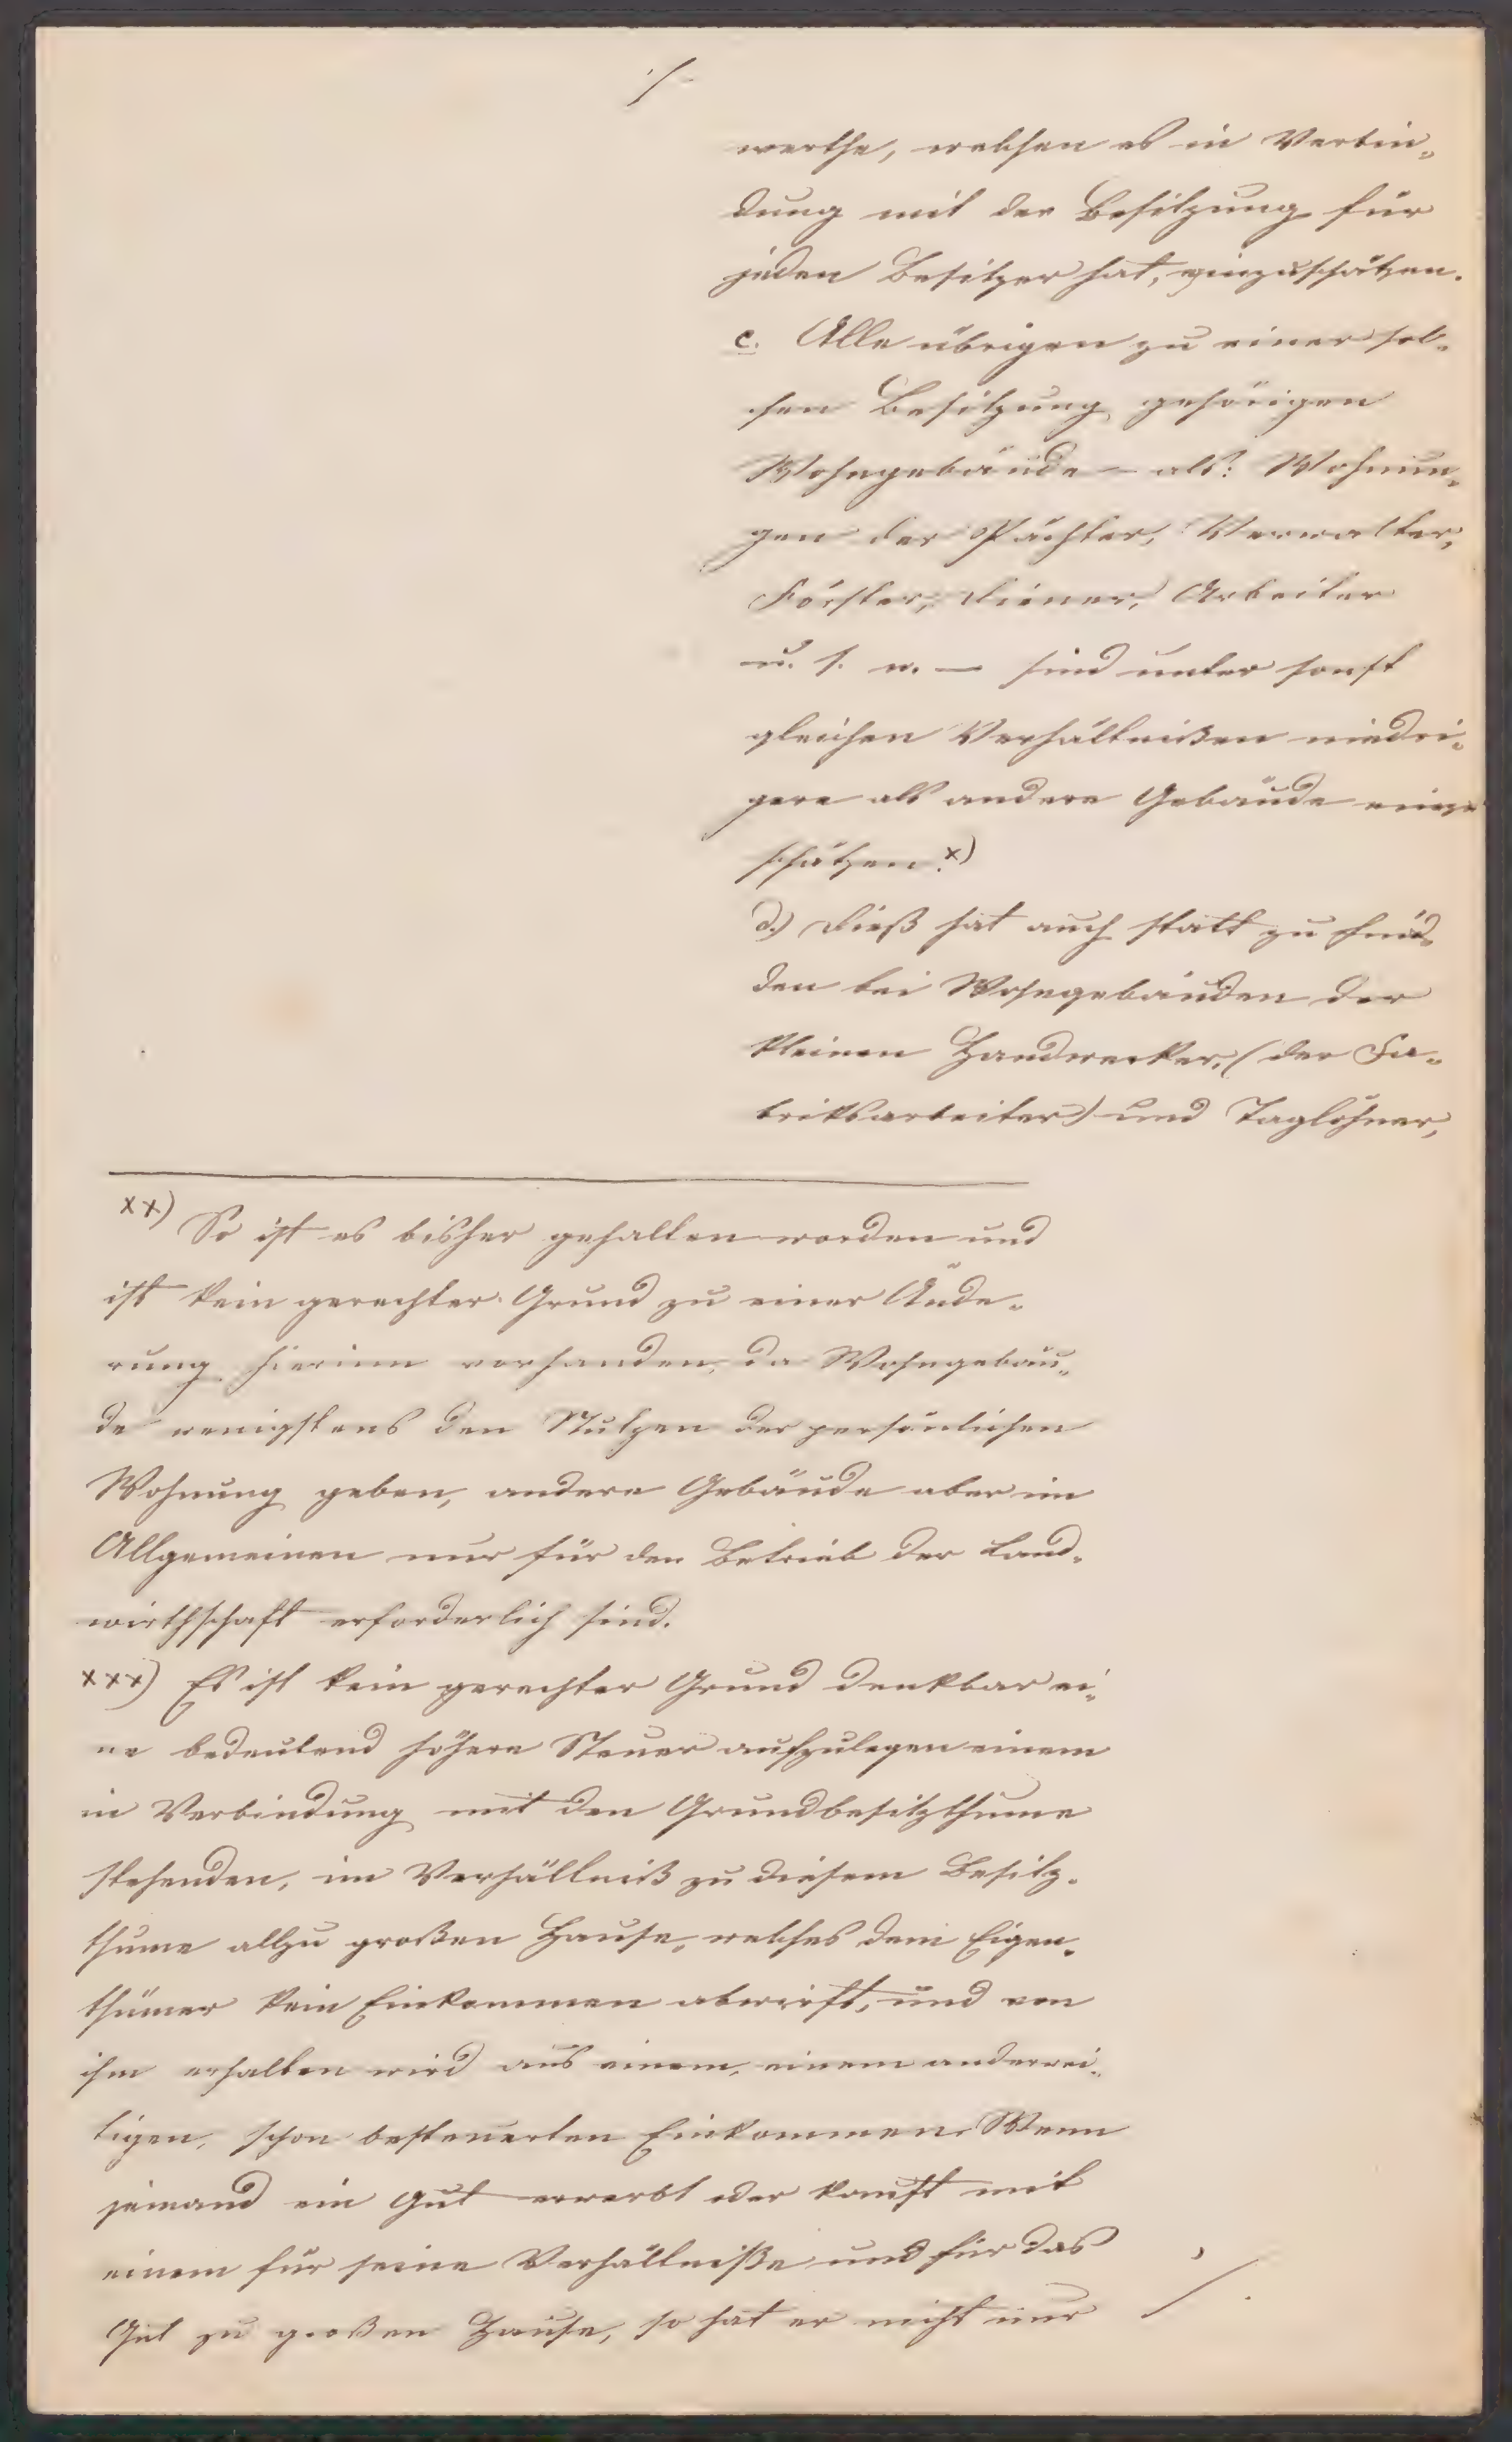 ./.
werthe, welchen es in Verbin„
dung mit der Besitzung für
jeden Besitzer hat, einzuschätzen.
c. Alle übrigen zu einer sol„
chen Besitzung gehörigen
Wohngebäude – als: Wohnun„
gen der Pächter, Verwalter,
Förster, Diener, Arbeiter
u. s. w. – sind unter sonst
gleichen Verhältnißen niedri„
gere als andere Gebäude einzu
schätzen. x)
d.) Dieß hat auch statt zu fin„
den bei Wohngebäuden der
kleinen Handwerker, (der Fa„
briksarbeiter) und Taglöhner,
xx) So ist es bisher gehalten worden und
ist kein gerechter Grund zu einer Ände„
rung hierinn vorhanden, da Wohngebäu„
de wenigstens den Nutzen der persönlichen
Wohnung geben, andere Gebäude aber im
Allgemeinen nur für den Betrieb der Land„
wirthschaft erforderlich sind.
xxx) Es ist kein gerechter Grund denkbar ei„
ne bedeutend höhere Steuer aufzulegen einem
in Verbindung mit den Grundbesitzthume
stehenden, im Verhältniß zu diesem Besitz„
thume allzu großen Hause, welches dem Eigen„
thümer kein Einkommen abwirft, und von
ihm erhalten wird aus einem, einem anderwei„
tigen, schon besteuerten Einkommen. Wenn
jemand ein Gut ererbt oder kauft mit
einem für seine Verhältniße und für das
Gut zu großen Hause, so hat er nicht nur
./.